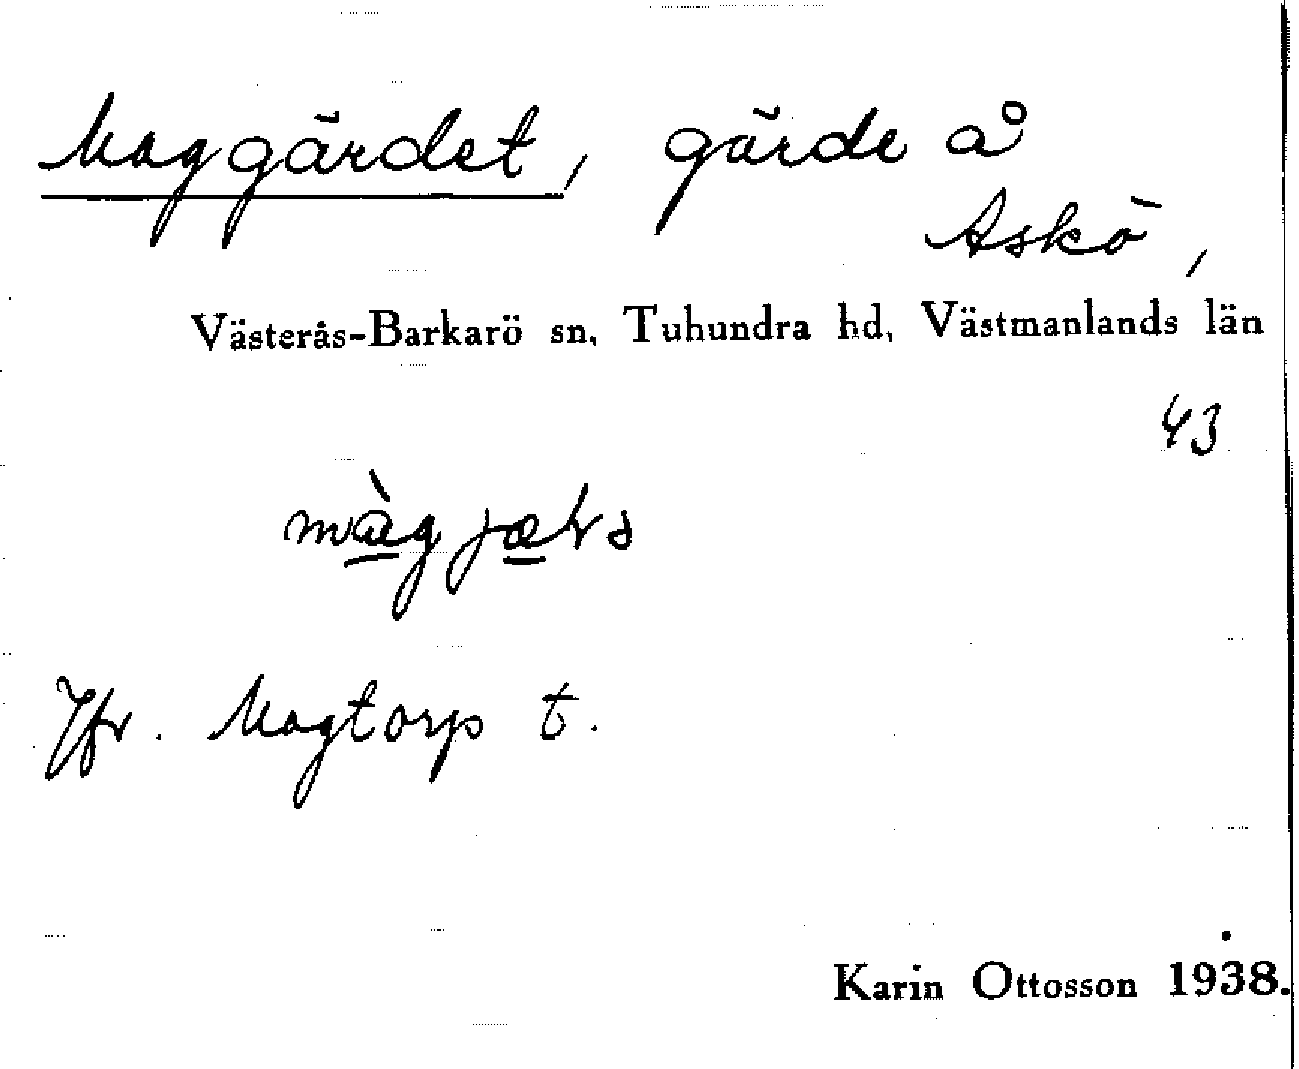 Maggärdet, gärde å
Askö,
Västerås-Barkarö sn, Tuhundra hd, Västmanlands län
43
Jfr. Magtorp t.
Karin Ottosson 1938.